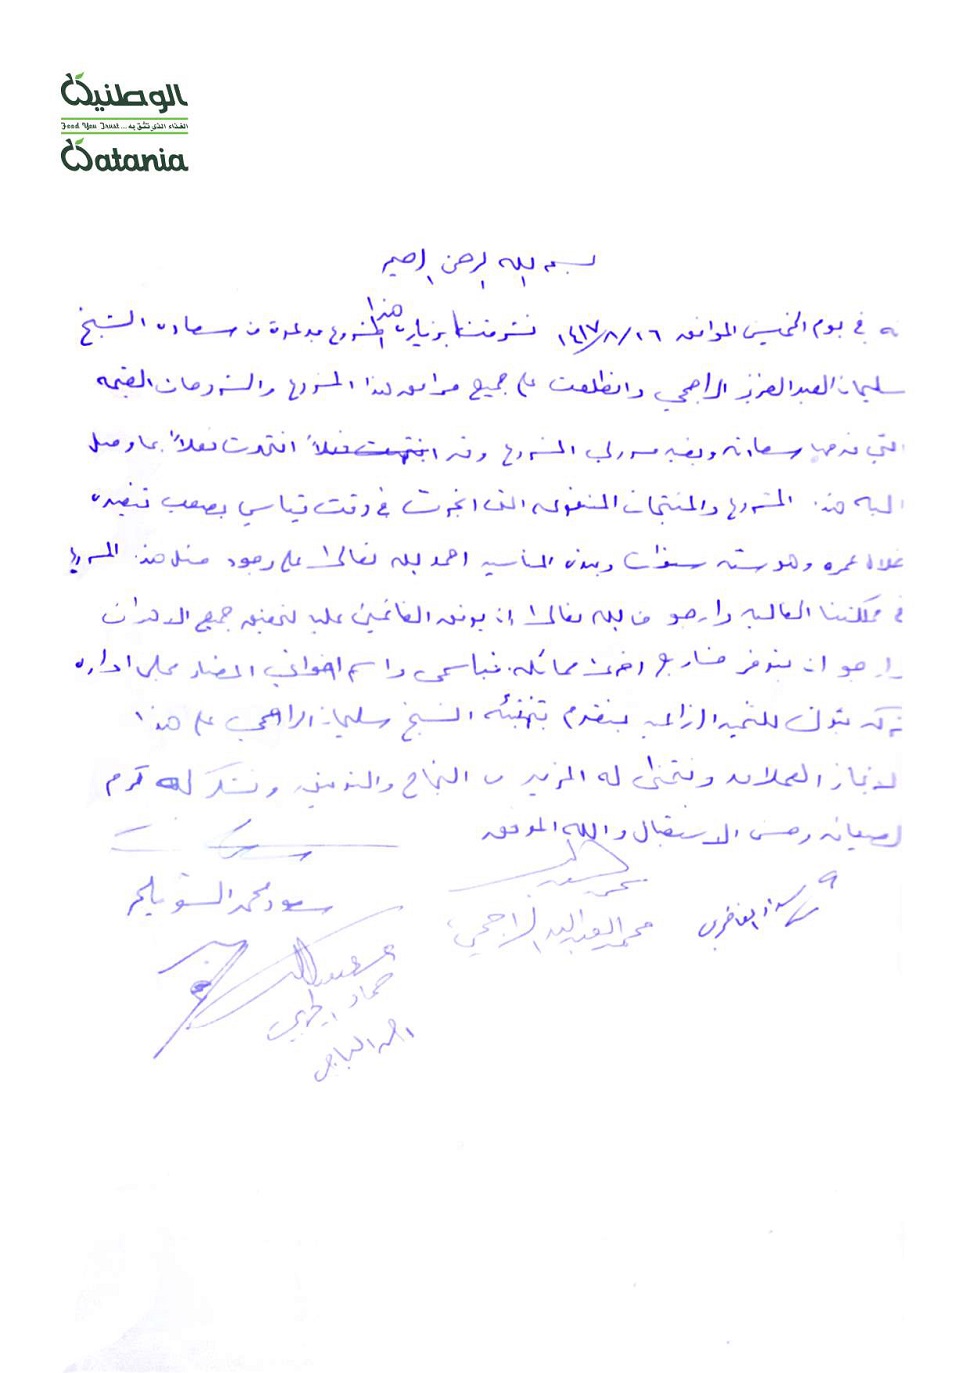 الوطنية
الغذاء الذي تثق به... Food You Trust
Watania
بسم الله الرحمن الرحيم
في يوم الخميس الموافق ١٤١٧/٨/١٦ تشرفنا بزيارة هذا المشروع بدعوة من سعادة الشيخ
سليمان العبدالعزيز الراجحي واطلعت على جميع مرافق هذا المشروع والشروحات القيمه
التي قدمها سعادته وبقيه مسئولي المشروع وقد انبهرت فعلاً بما وصل
اليه هذا المشروع والمنتجات المتنوعه التي انجزت في وقت قياسي يصعب تنفيذه
خلال عمره وهو سته سنوات وبهذه المناسبه احمد الله تعالى على وجود مثل هذا المشروع
في مملكتنا الغاليه وارجو من الله تعالى ان يوفق القائمين عليه لتحقيق جميع الاهداف
وارجو ان يتوفر مشاريع اخرى مماثله، فباسمي وباسم اخواني اعضاء مجلس اداره
شركة تبوك للتنميه الزراعيه نتقدم بتهنئه الشيخ سليمان الراجحي على هذا
الانجاز العملاق ونتمنى له المزيد من النجاح والتوفيق، ونشكر له كرم
الضيافه وحسن الاستقبال والله الموفق
سعود محمد السويلم
محمد العبدالله الراجحي